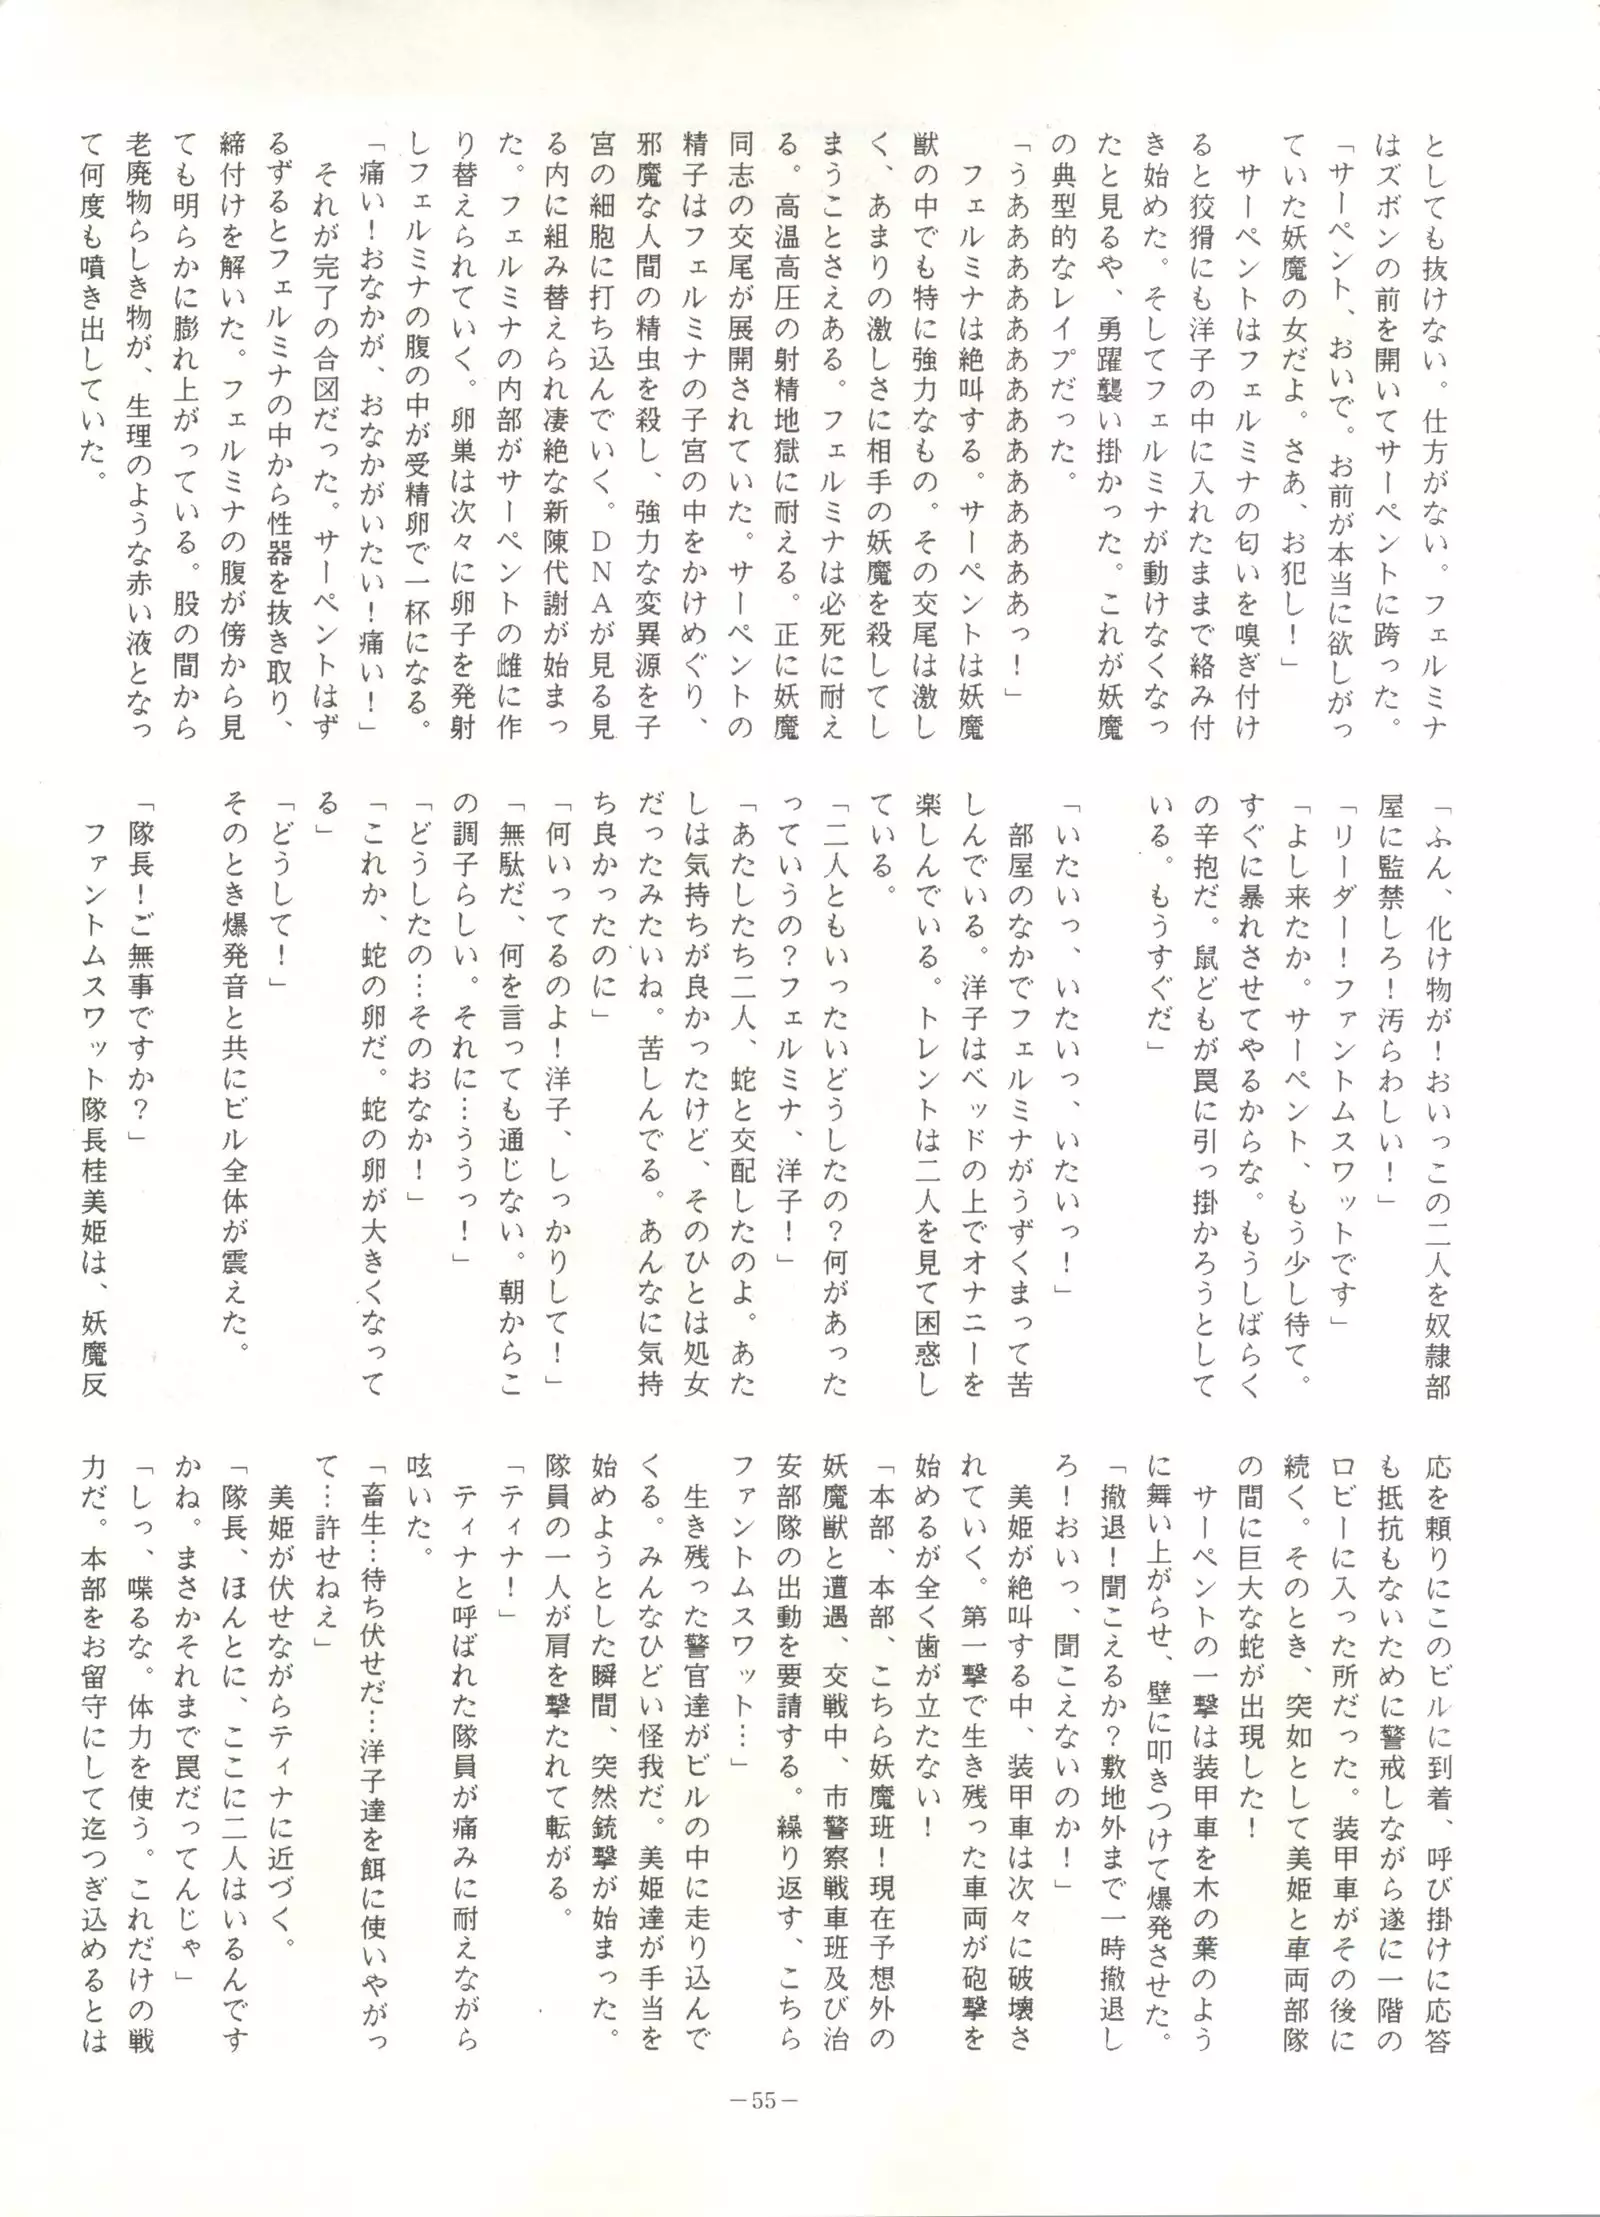 としても抜けない。仕方がない。フェルミナ
はズボンの前を開いてサーペントに跨った。
「サーペント、おいで。お前が本当に欲しがっ
ていた妖魔の女だよ。さあ、お犯し！」
サーペントはフェルミナの匂いを嗅ぎ付け
ると狡猾にも洋子の中に入れたままで絡み付
き始めた。そしてフェルミナが動けなくなっ
たと見るや、勇躍襲い掛かった。これが妖魔
の典型的なレイプだった。
「うああああああああああああああっ！」
フェルミナは絶叫する。サーペントは妖魔
獣の中でも特に強力なもの。その交尾は激し
く、あまりの激しさに相手の妖魔を殺してし
まうことさえある。フェルミナは必死に耐え
る。高温高圧の射精地獄に耐える。正に妖魔
同志の交尾が展開されていた。サーペントの
精子はフェルミナの子宮の中をかけめぐり、
邪魔な人間の精虫を殺し、強力な変異源を子
宮の細胞に打ち込んでいく。ＤＮＡが見る見
る内に組み替えられ凄絶な新陳代謝が始まっ
た。フェルミナの内部がサーペントの雌に作
り替えられていく。卵巣は次々に卵子を発射
しフェルミナの腹の中が受精卵で一杯になる。
「痛い！おなかが、おなかがいたい！痛い！」
それが完了の合図だった。サーペントはず
るずるとフェルミナの中から性器を抜き取り、
締付けを解いた。フェルミナの腹が傍から見
ても明らかに膨れ上がっている。股の間から
老廃物らしき物が、生理のような赤い液となっ
て何度も噴き出していた。
「ふん、化け物が！おいっこの二人を奴隷部
屋に監禁しろ！汚らわしい！」
「リーダー！ファントムスワットです」
「よし来たか。サーペント、もう少し待て。
すぐに暴れさせてやるからな。もうしばらく
の辛抱だ。鼠どもが罠に引っ掛かろうとして
いる。もうすぐだ」
「いたいっ、いたいっ、いたいっ！」
部屋のなかでフェルミナがうずくまって苦
しんでいる。洋子はベッドの上でオナニーを
楽しんでいる。トレントは二人を見て困惑し
ている。
「二人ともいったいどうしたの？何があった
っていうの？フェルミナ、洋子！」
「あたしたち二人、蛇と交配したのよ。あた
しは気持ちが良かったけど、そのひとは処女
だったみたいね。苦しんでる。あんなに気持
ち良かったのに」
「何いってるのよ！洋子、しっかりして！」
「無駄だ、何を言っても通じない。朝からこ
の調子らしい。それに…ううっ！」
「どうしたの…そのおなか！」
「これか、蛇の卵だ。蛇の卵が大きくなって
る」
「どうして！」
そのとき爆発音と共にビル全体が震えた。
「隊長！ご無事ですか？」
ファントムスワット隊長桂美姫は、妖魔反
応を頼りにこのビルに到着、呼び掛けに応答
も抵抗もないために警戒しながら遂に一階の
ロビーに入った所だった。装甲車がその後に
続く。そのとき、突如として美姫と車両部隊
の間に巨大な蛇が出現した！
サーペントの一撃は装甲車を木の葉のよう
に舞い上がらせ、壁に叩きつけて爆発させた。
「撤退！聞こえるか？敷地外まで一時撤退し
ろ！おいっ、聞こえないのか！」
美姫が絶叫する中、装甲車は次々に破壊さ
れていく。第一撃で生き残った車両が砲撃を
始めるが全く歯が立たない！
「本部、本部、こちら妖魔班！現在予想外の
妖魔獣と遭遇、交戦中、市警察戦車班及び治
安部隊の出動を要請する。繰り返す、こちら
ファントムスワット…」
生き残った警官達がビルの中に走り込んで
くる。みんなひどい怪我だ。美姫達が手当を
始めようとした瞬間、突然銃撃が始まった。
隊員の一人が肩を撃たれて転がる。
「ティナ！」
ティナと呼ばれた隊員が痛みに耐えながら
呟いた。
「畜生…待ち伏せだ…洋子達を餌に使いやがっ
て…許せねえ」
美姫が伏せながらティナに近づく。
「隊長、ほんとに、ここに二人はいるんです
かね。まさかそれまで罠だってんじゃ」
「しっ、喋るな。体力を使う。これだけの戦
力だ。本部をお留守にして迄つぎ込めるとは
－55－